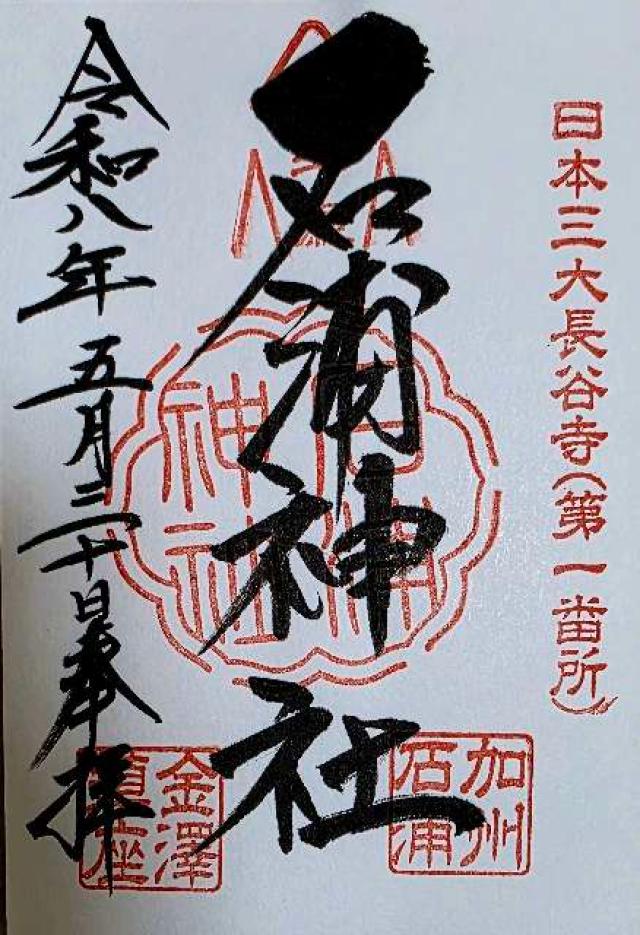 日本三大長谷寺(第一番所)
石浦神社
石浦
神社
加州
石浦
金澤
鎮座
令和八年五月三十日奉拝